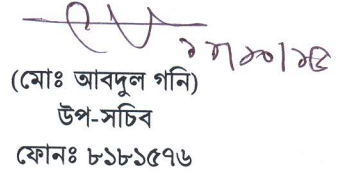 (মোঃ আবদুল গনি)
উপ-সচিব
ফোনঃ ৮১৮১৫৭৬